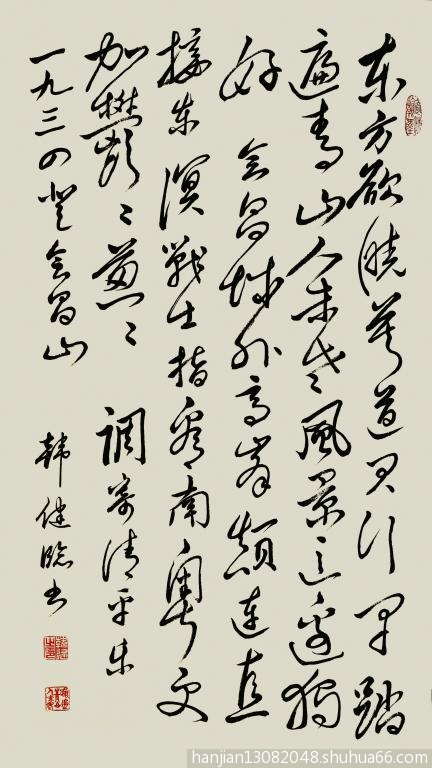 东方欲曉莫道君行早踏
遍青山人未老風景这边獨
好 会昌城外高峯颠连直
接东溟戰士指看南粤更
加鬱〻葱〻 調寄清平乐
一九三四登会昌山 韩健临书
hanjian13082048.shuhua66.com